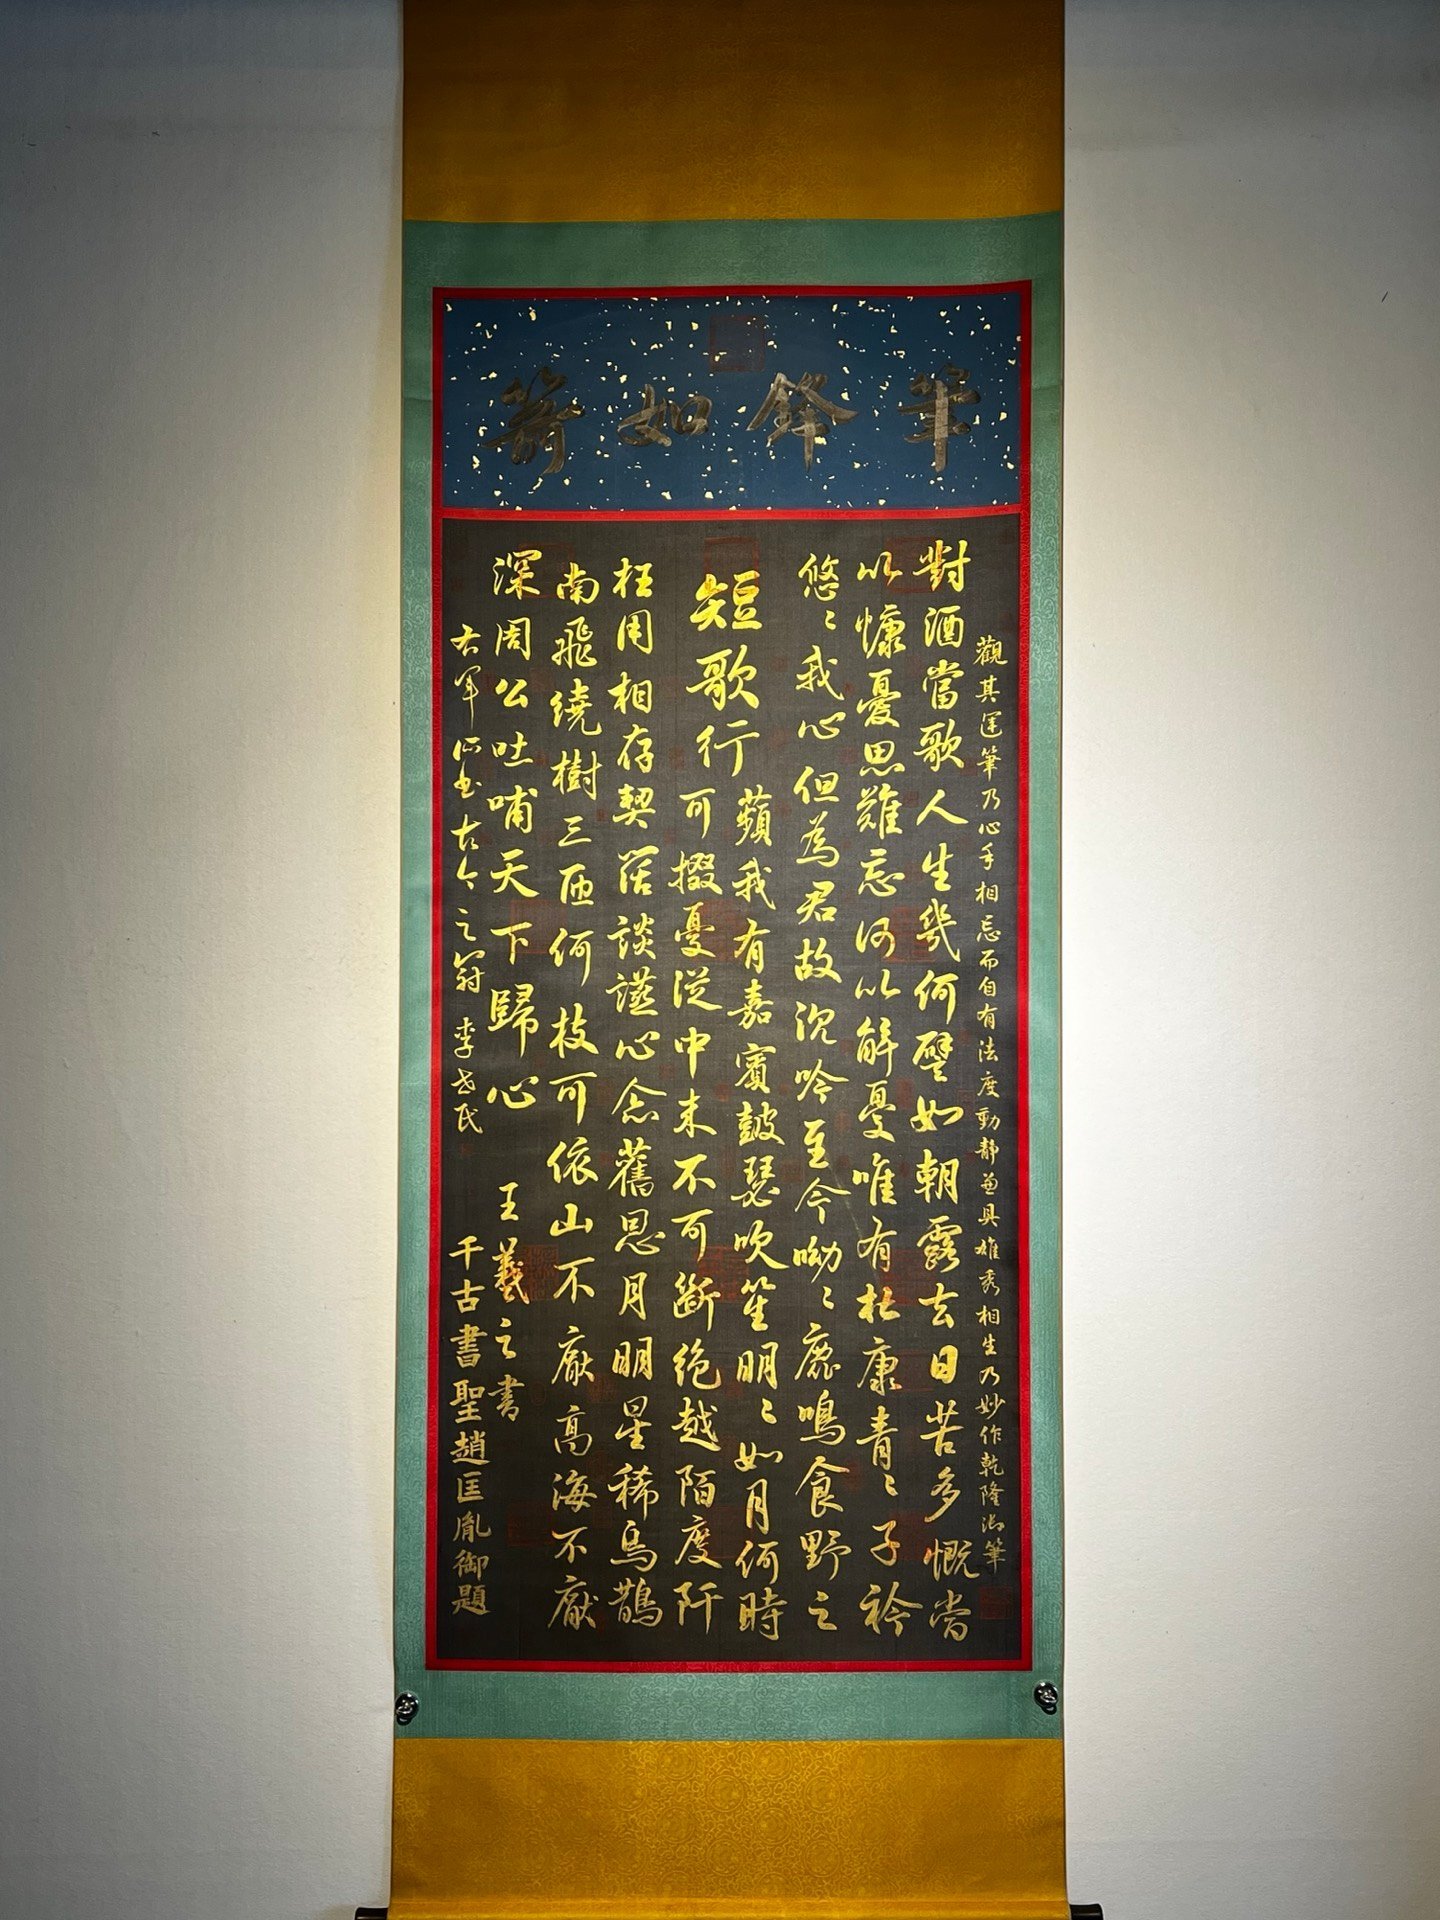 筆鋒如箭
觀其運筆乃心手相忘而自有法度動靜兼具雄秀相生乃妙作乾隆御筆
對酒當歌人生幾何譬如朝露去日苦多慨當
以慷憂思難忘何以解憂唯有杜康青〻子衿
悠〻我心但為君故沉吟至今呦〻鹿鳴食野之
短歌行
蘋我有嘉賓鼓瑟吹笙明〻如月何時
可掇憂從中來不可斷絕越陌度阡
枉用相存契闊談讌心念舊恩月明星稀烏鵲
南飛繞樹三匝何枝可依山不厭高海不厭
深周公吐哺天下歸心 王羲之書
右軍法書古今之冠 李世民
千古書聖趙匡胤御題